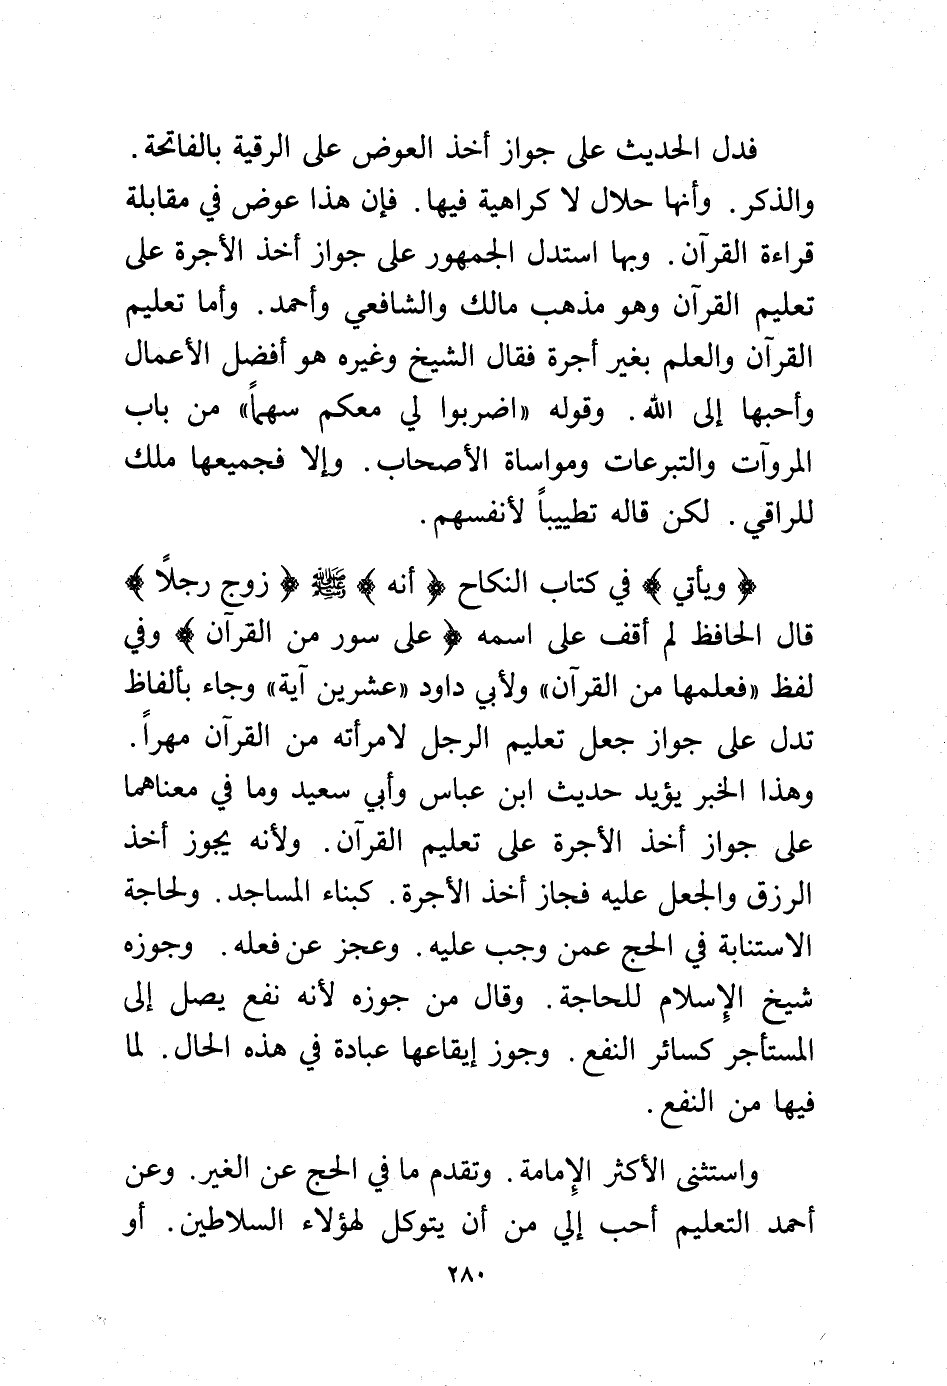 فدل الحديث على جواز أخذ العوض على الرقية بالفاتحة.
والذكر. وأنها حلال لا كراهية فيها. فإن هذا عوض في مقابلة
قراءة القرآن. وبها استدل الجمهور على جواز أخذ الأجرة على
تعليم القرآن وهو مذهب مالك والشافعي وأحمد. وأما تعليم
القرآن والعلم بغير أجرة فقال الشيخ وغيره هو أفضل الأعمال
وأحبها إلى الله. وقوله «اضربوا لي معكم سهماً» من باب
المروآت والتبرعات ومواساة الأصحاب. وإلا فجميعها ملك
للراقي. لكن قاله تطييباً لأنفسهم.
﴿ ويأتي ﴾ في كتاب النكاح ﴿ أنه ﴾ ﷺ ﴿ زوج رجلاً ﴾
قال الحافظ لم أقف على اسمه ﴿ على سور من القرآن ﴾ وفي
لفظ «فعلمها من القرآن» ولأبي داود «عشرين آية» وجاء بألفاظ
تدل على جواز جعل تعليم الرجل لامرأته من القرآن مهراً.
وهذا الخبر يؤيد حديث ابن عباس وأبي سعيد وما في معناهما
على جواز أخذ الأجرة على تعليم القرآن. ولأنه يجوز أخذ
الرزق والجعل عليه فجاز أخذ الأجرة. كبناء المساجد. ولحاجة
الاستنابة في الحج عمن وجب عليه. وعجز عن فعله. وجوزه
شيخ الإسلام للحاجة. وقال من جوزه لأنه نفع يصل إلى
المستأجر كسائر النفع. وجوز إيقاعها عبادة في هذه الحال. لما
فيها من النفع.
واستثنى الأكثر الإمامة. وتقدم ما في الحج عن الغير. وعن
أحمد التعليم أحب إلي من أن يتوكل لهؤلاء السلاطين. أو
٢٨٠